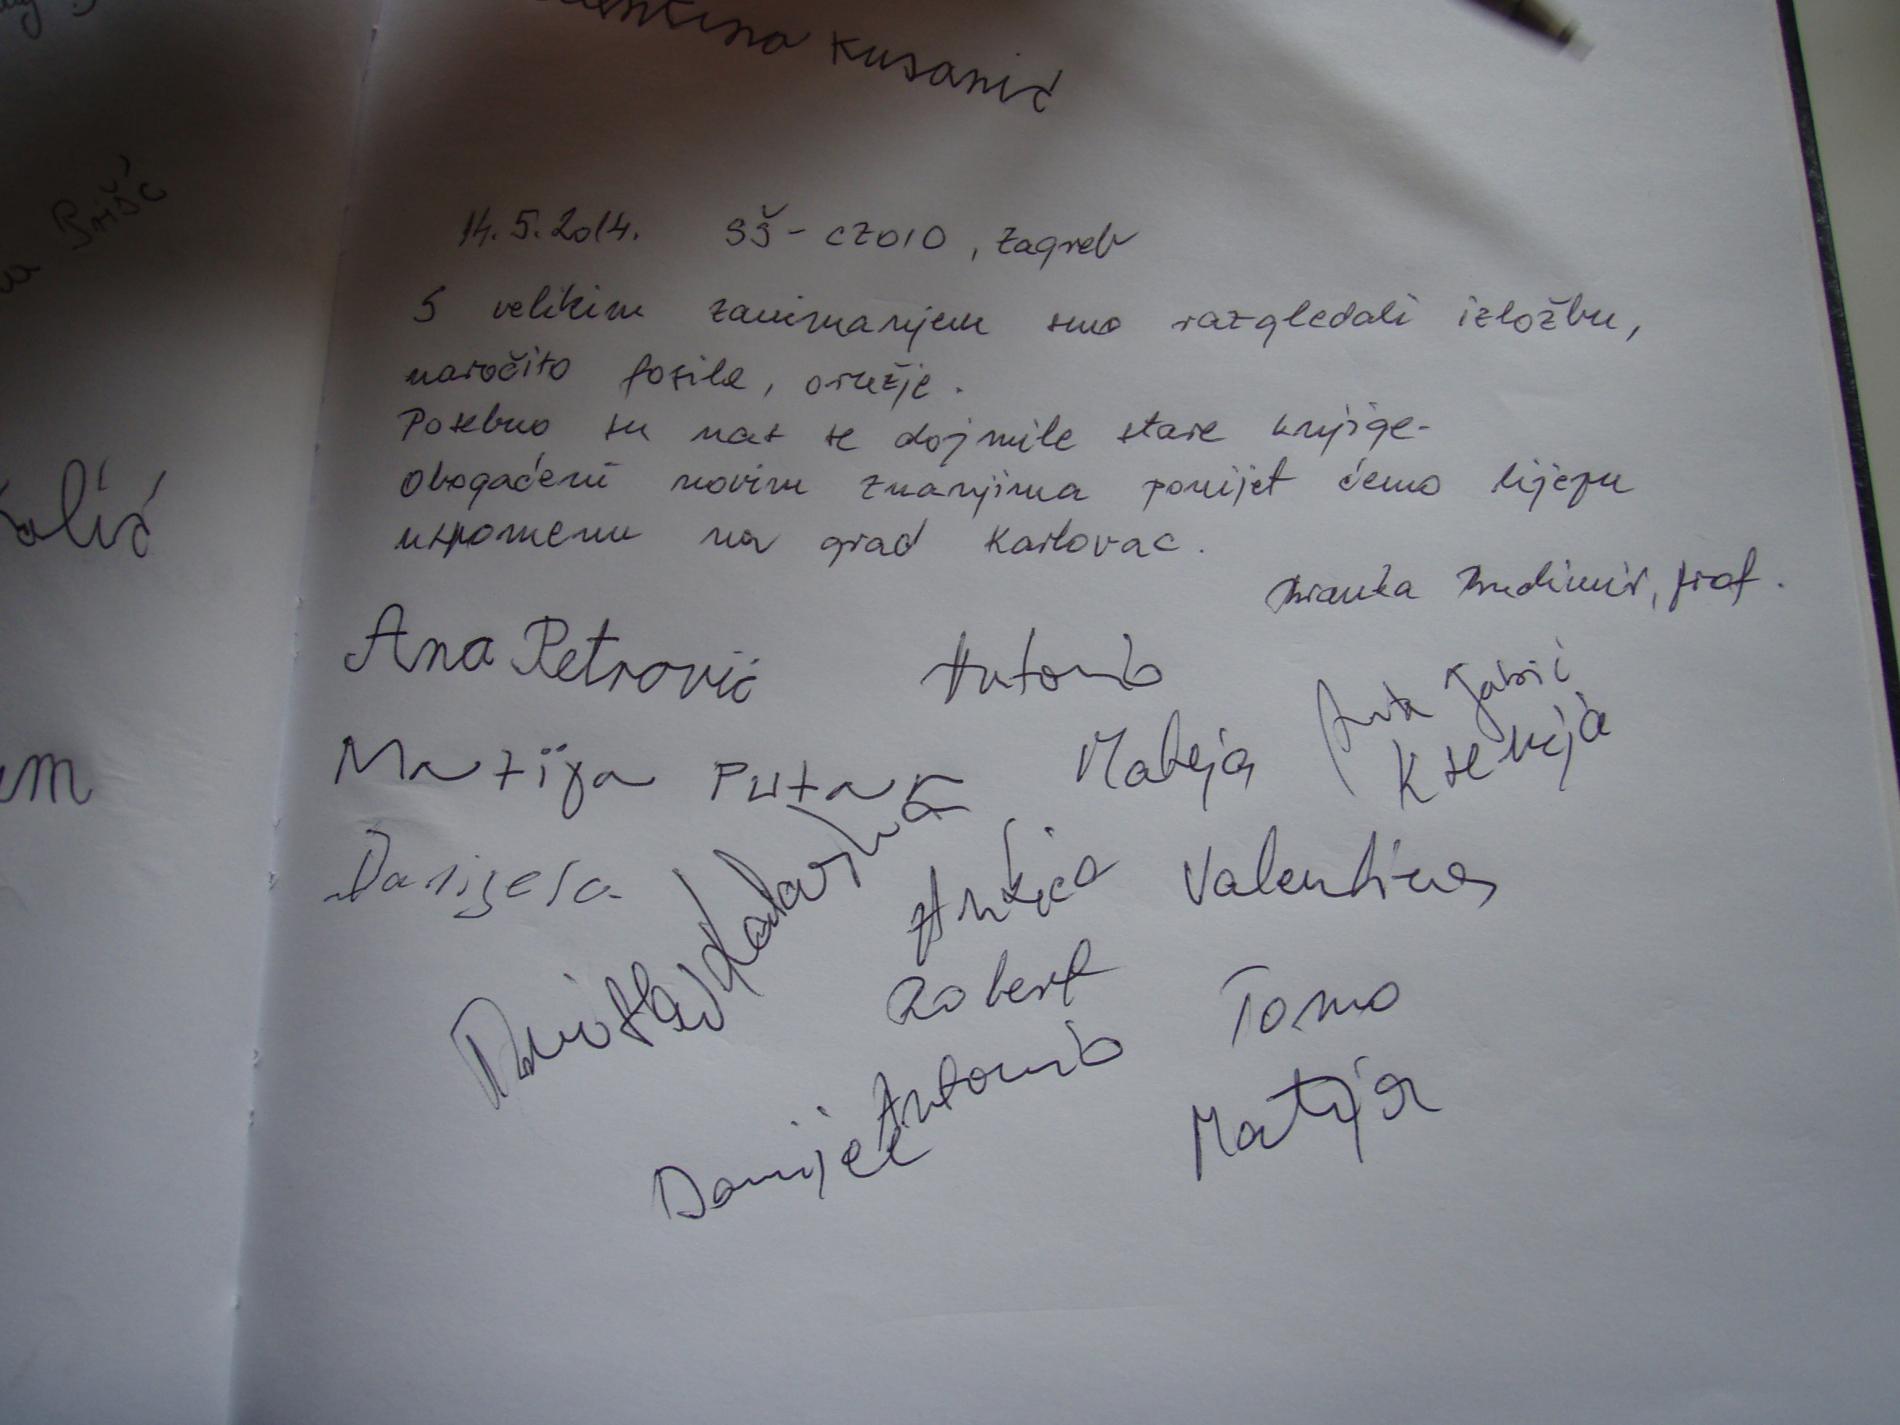 Kusanić
14.5.2014. SŠ - CZOIO, Zagreb
S velikim zanimanjem smo razgledali izložbu,
naročito fosile, oružje.
Posebno su nas se dojmile stare knjige.
Obogaćeni novim znanjima ponijet ćemo lijepu
uspomenu na grad Karlovac.
Branka Budimir, prof.
Ana Petrović
Antonio
Anta Jakić
Matija Putar
Mateja
Ksenija
Danijela
Ankica
Valentina
Robert
Tomo
Antonio
Danijel
Matija